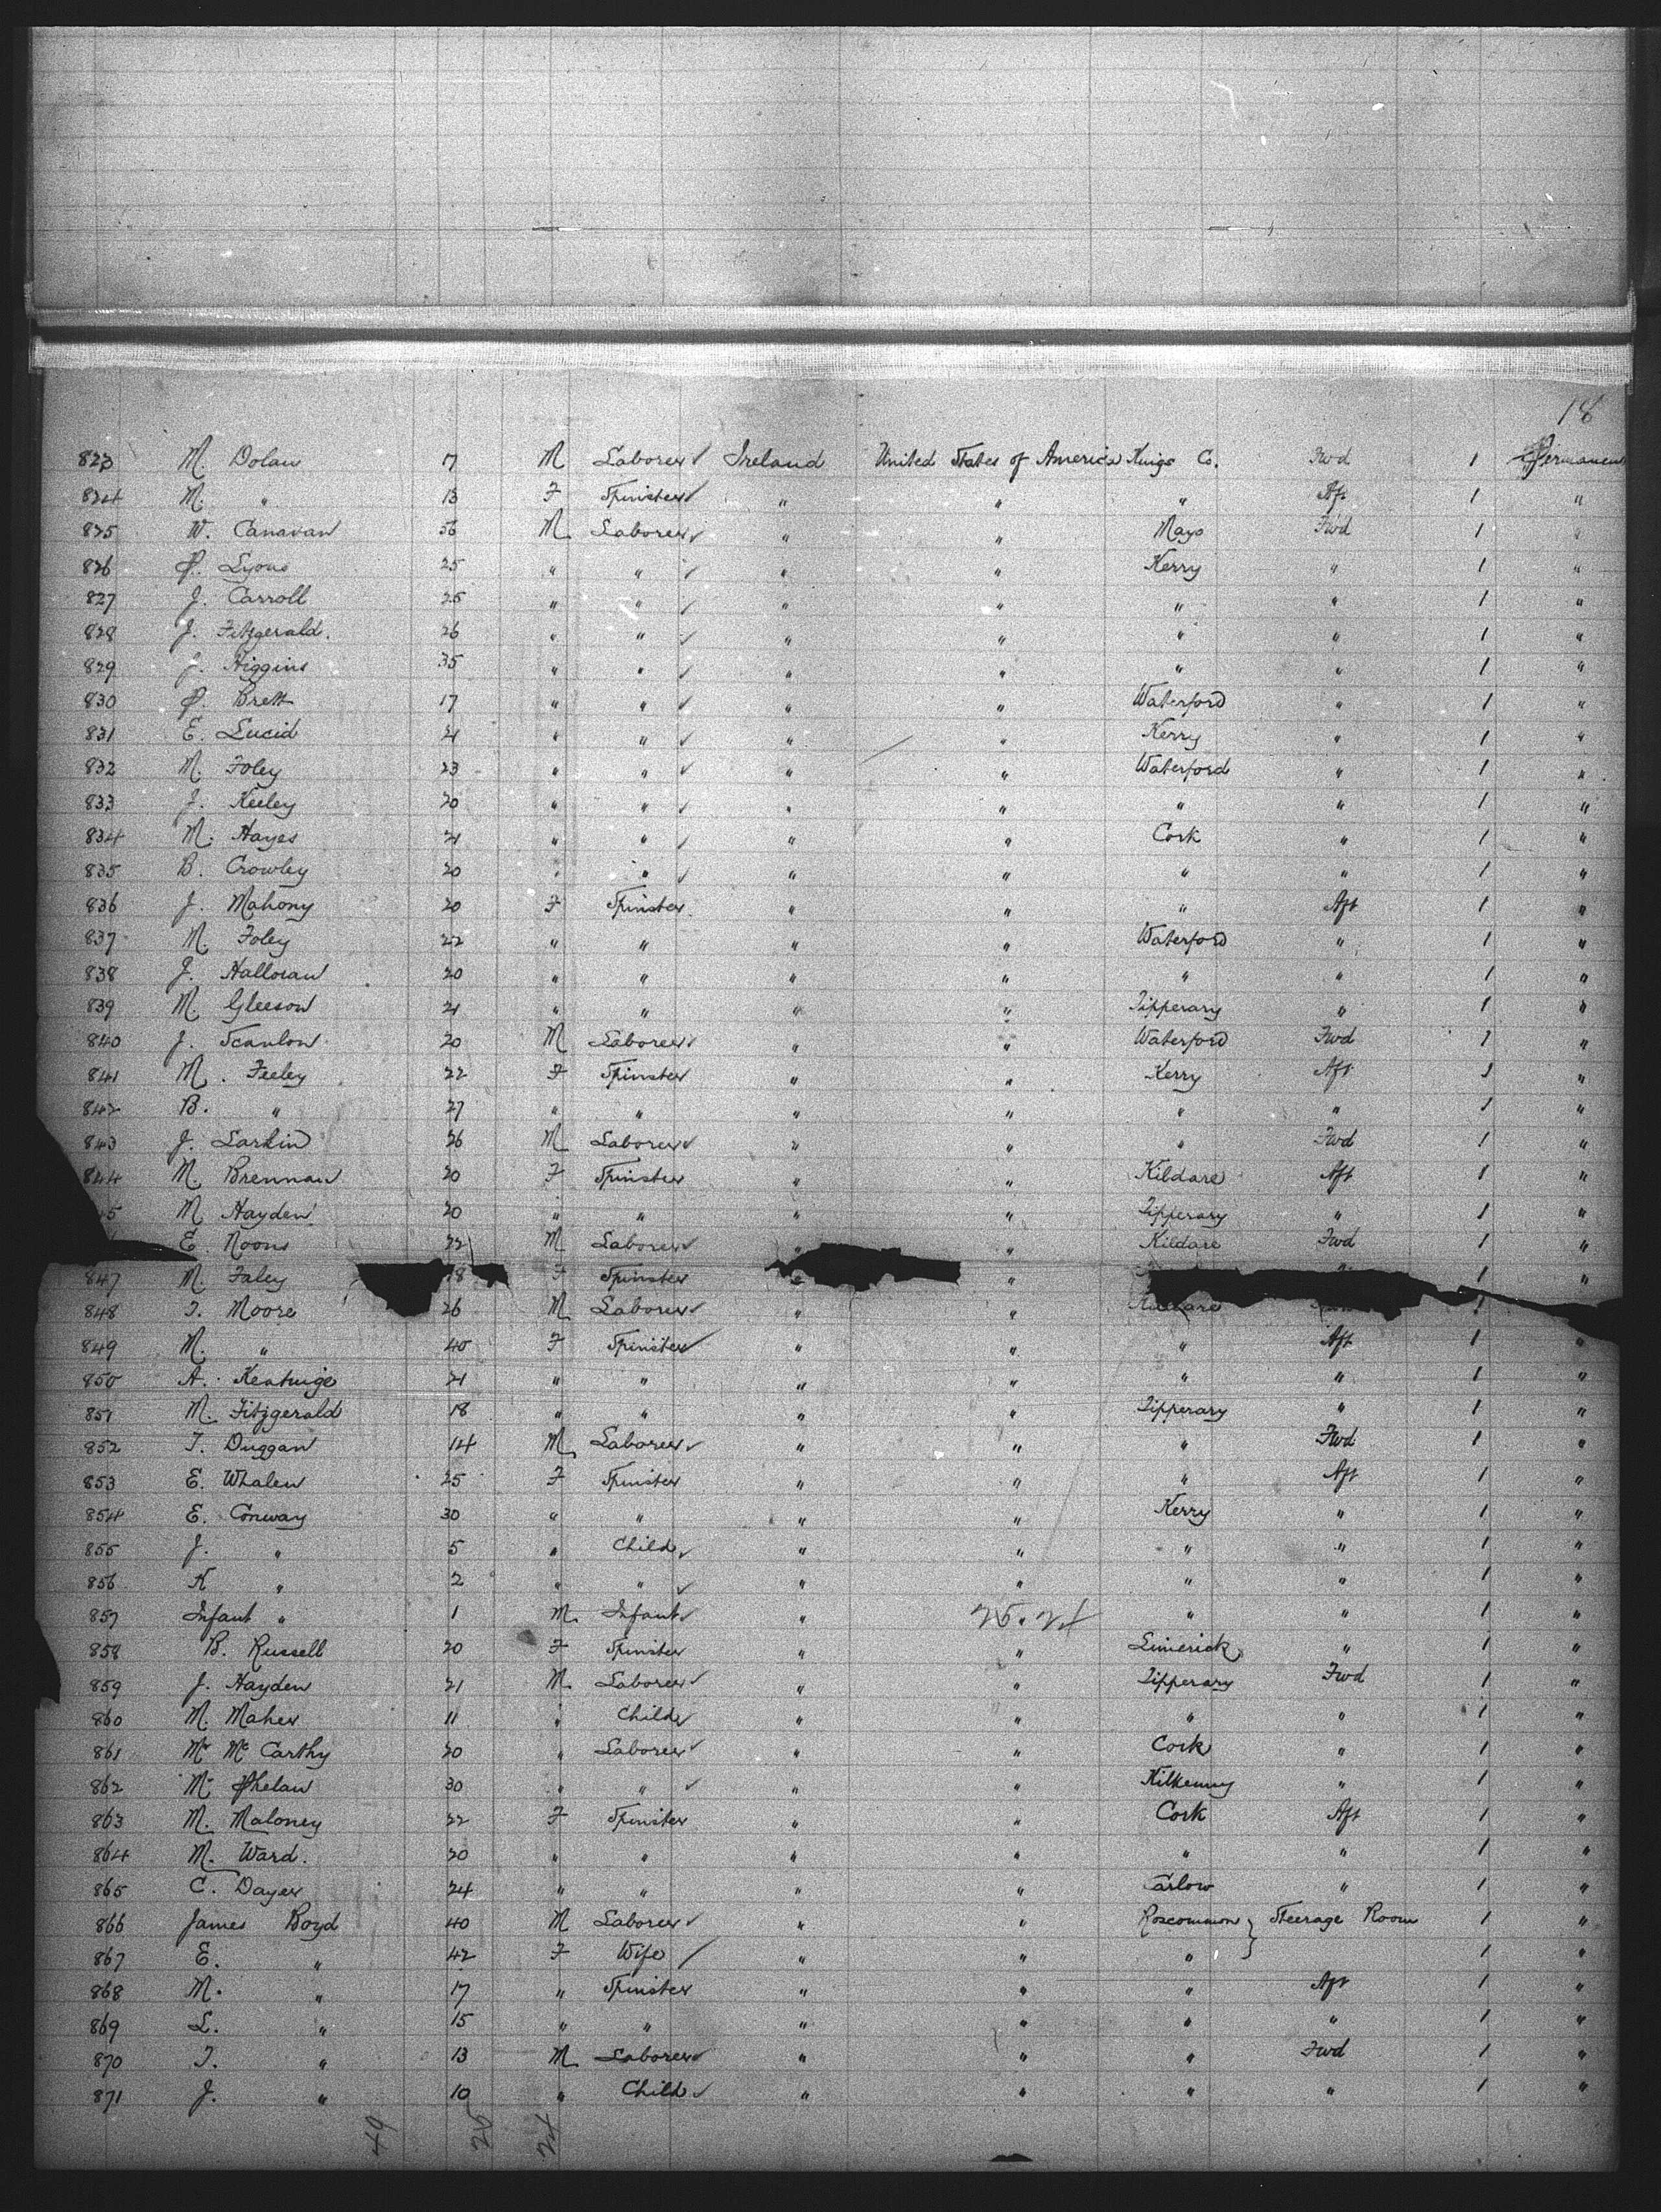 18
823 M. Dolan 17 M Laborer Ireland United States of America Kings Co. Fwd 1 Permanent
824 M. " 13 F Spinster " " " Aft 1 "
825 W. Canavan 56 M Laborer " " Mayo Fwd 1 "
826 P. Lyons 25 " " " " Kerry " 1 "
827 J. Carroll 25 " " " " " " 1 "
828 J. Fitzgerald. 26 " " " " " " 1 "
829 J. Higgins 35 " " " " " " 1 "
830 P. Brett 17 " " " " Waterford " 1 "
831 E. Lucid 21 " " " " Kerry " 1 "
832 M. Foley 23 " " " " Waterford " 1 "
833 J. Keeley 20 " " " " " " 1 "
834 M. Hayes 21 " " " " Cork " 1 "
835 B. Crowley 20 " " " " " " 1 "
836 J. Mahony 20 F Spinster " " " Aft 1 "
837 M. Foley 22 " " " " Waterford " 1 "
838 J. Halloran 20 " " " " " " 1 "
839 M. Gleeson 21 " " " " Tipperary " 1 "
840 J. Scanlon 20 M Laborer " " Waterford Fwd 1 "
841 M. Feeley 22 F Spinster " " Kerry Aft 1 "
842 B. " 27 " " " " " " 1 "
843 J. Larkin 26 M Laborer " " " Fwd 1 "
844 M. Brennan 20 F Spinster " " Kildare Aft 1 "
45 M Hayden 20 " " " " Tipperary " 1 "
E. Noons 22 M Laborer " " Kildare Fwd 1 "
847 M. Faley 28 F Spinster " " 1 "
848 T. Moore 26 M Laborer " " Kildare 1
849 M. " 40 F Spinster " " " Aft 1 "
850 A. Keatinge 21 " " " " " " 1 "
851 M. Fitzgerald 18 " " " " Tipperary " 1 "
852 T. Duggan 14 M Laborer " " " Fwd 1 "
853 E. Whalen 25 F Spinster " " " Aft 1 "
854 E. Conway 30 " " " " Kerry " 1 "
855 J. " 5 " Child " " " " 1 "
856 K " 2 " " " " " " 1 "
857 Infant " 1 M Infant " 25.24 " " 1 "
858 B. Russell 20 F Spinster " " Limerick " 1 "
859 J. Hayden 21 M Laborer " " Tipperary Fwd 1 "
860 M. Maher 11 " Child " " " " 1 "
861 Mr McCarthy 20 " Laborer " " Cork " 1 "
862 M. Phelan 30 " " " " Kilkenny " 1 "
863 M. Maloney 22 F Spinster " " Cork Aft 1 "
864 M. Ward. 20 " " " " " " 1 "
865 C. Dayer 24 " " " " Carlow " 1 "
866 James Boyd 40 M Laborer " " Roscommon } Steerage Room 1 "
867 E. " 42 F Wife " " " 1 "
868 M. " 17 " Spinster " " " Aft 1 "
869 L. " 15 " " " " " " 1 "
870 T. " 13 M Laborer " " " Fwd 1 "
871 J. " 10 " Child " " " " 1 "
49 25 24